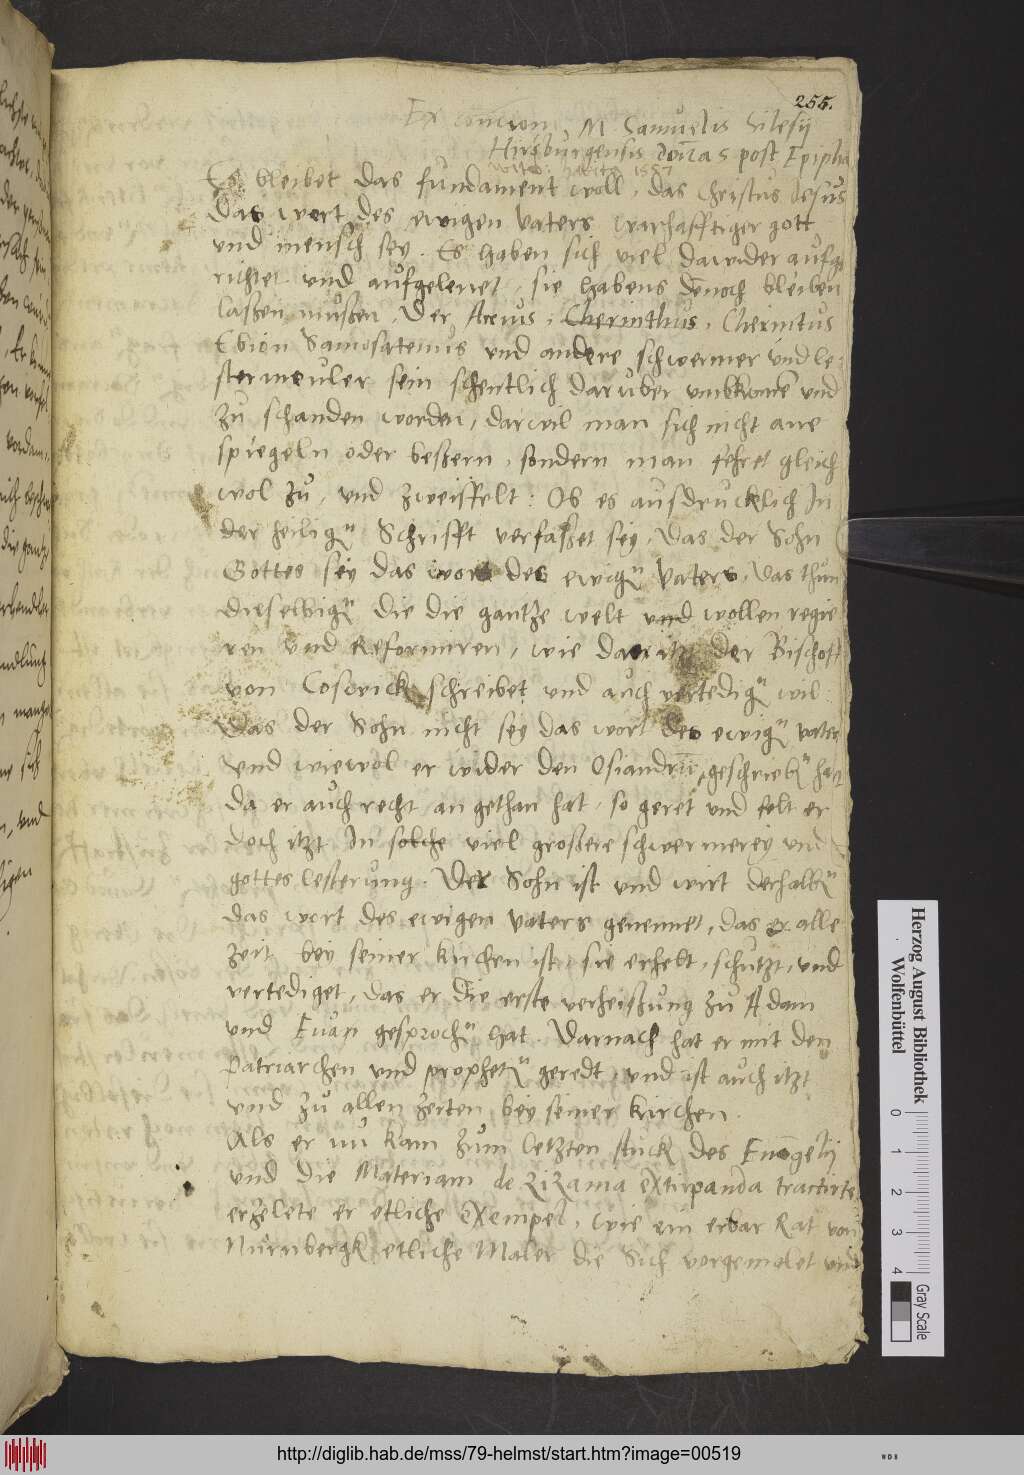 255.
Ex concion. M. Samuelis Silesij
Hirsburgensis Doīca 5 post Epipha
1557
Es bleibet das fundament woll, das Christus Jesus
das wort des ewigen vaters warhafftiger gott
und mensch sey. Es haben sich viel dawider aufge
richtet und aufgelenet, sie habens denoch bleiben
laßen mußen. Der Arrius, Cherinthus, Cherintus
Ebion Samosatenus und andere schwermer und le-
stermeuler sein schentlich daruber umbkomē und
zu schanden worden, darwil man sich nicht ane
spiegeln oder beßern, sondern man fehret gleich
wol zu, und zweiffelt: Ob es ausdrucklich In
der heiligē Schrifft verfaßet sey, Das der Sohn
Gottes sey das wort des ewigē vaters, Das thun
dieselbigē die die gantze welt und wollen regie
ren und Reformiren, wie der Bischoff
von Coswick schreibet und auch vertedigē wil:
Das der Sohn nicht sey das wort des ewigē vaters
und wiewol er wider den Osiandrū geschriebē hat
da er auch recht an gethan hat, so geret und felt er
doch itzt In solche viel großere schwermerey und
gottes lesterung. Der Sohn ist und wirt derhalbē
das wort des ewigen vaters genennet, das er alle
zeit bey seiner kirchen ist, sie erhelt, schutzt, und
vertediget, das er die erste verheißung zu Adam
und Evan gesprochē hat. Darnach hat er mit den
Patriarchen und prophetē geredt, und ist auch itzt
und zu allen zeiten bey seiner kirchen.
Als er nu kam zum letzten stuck des Euāgelij
und die Materiam de Zizania extirpanda tractirte
erzelete er etliche exempel, wie ein erbar Rat von
Nurnbergk etliche Maler die sich vorgemalet und
Herzog August Bibliothek
Wolfenbüttel
0 1 2 3 4
Gray Scale
http://diglib.hab.de/mss/79-helmst/start.htm?image=00519